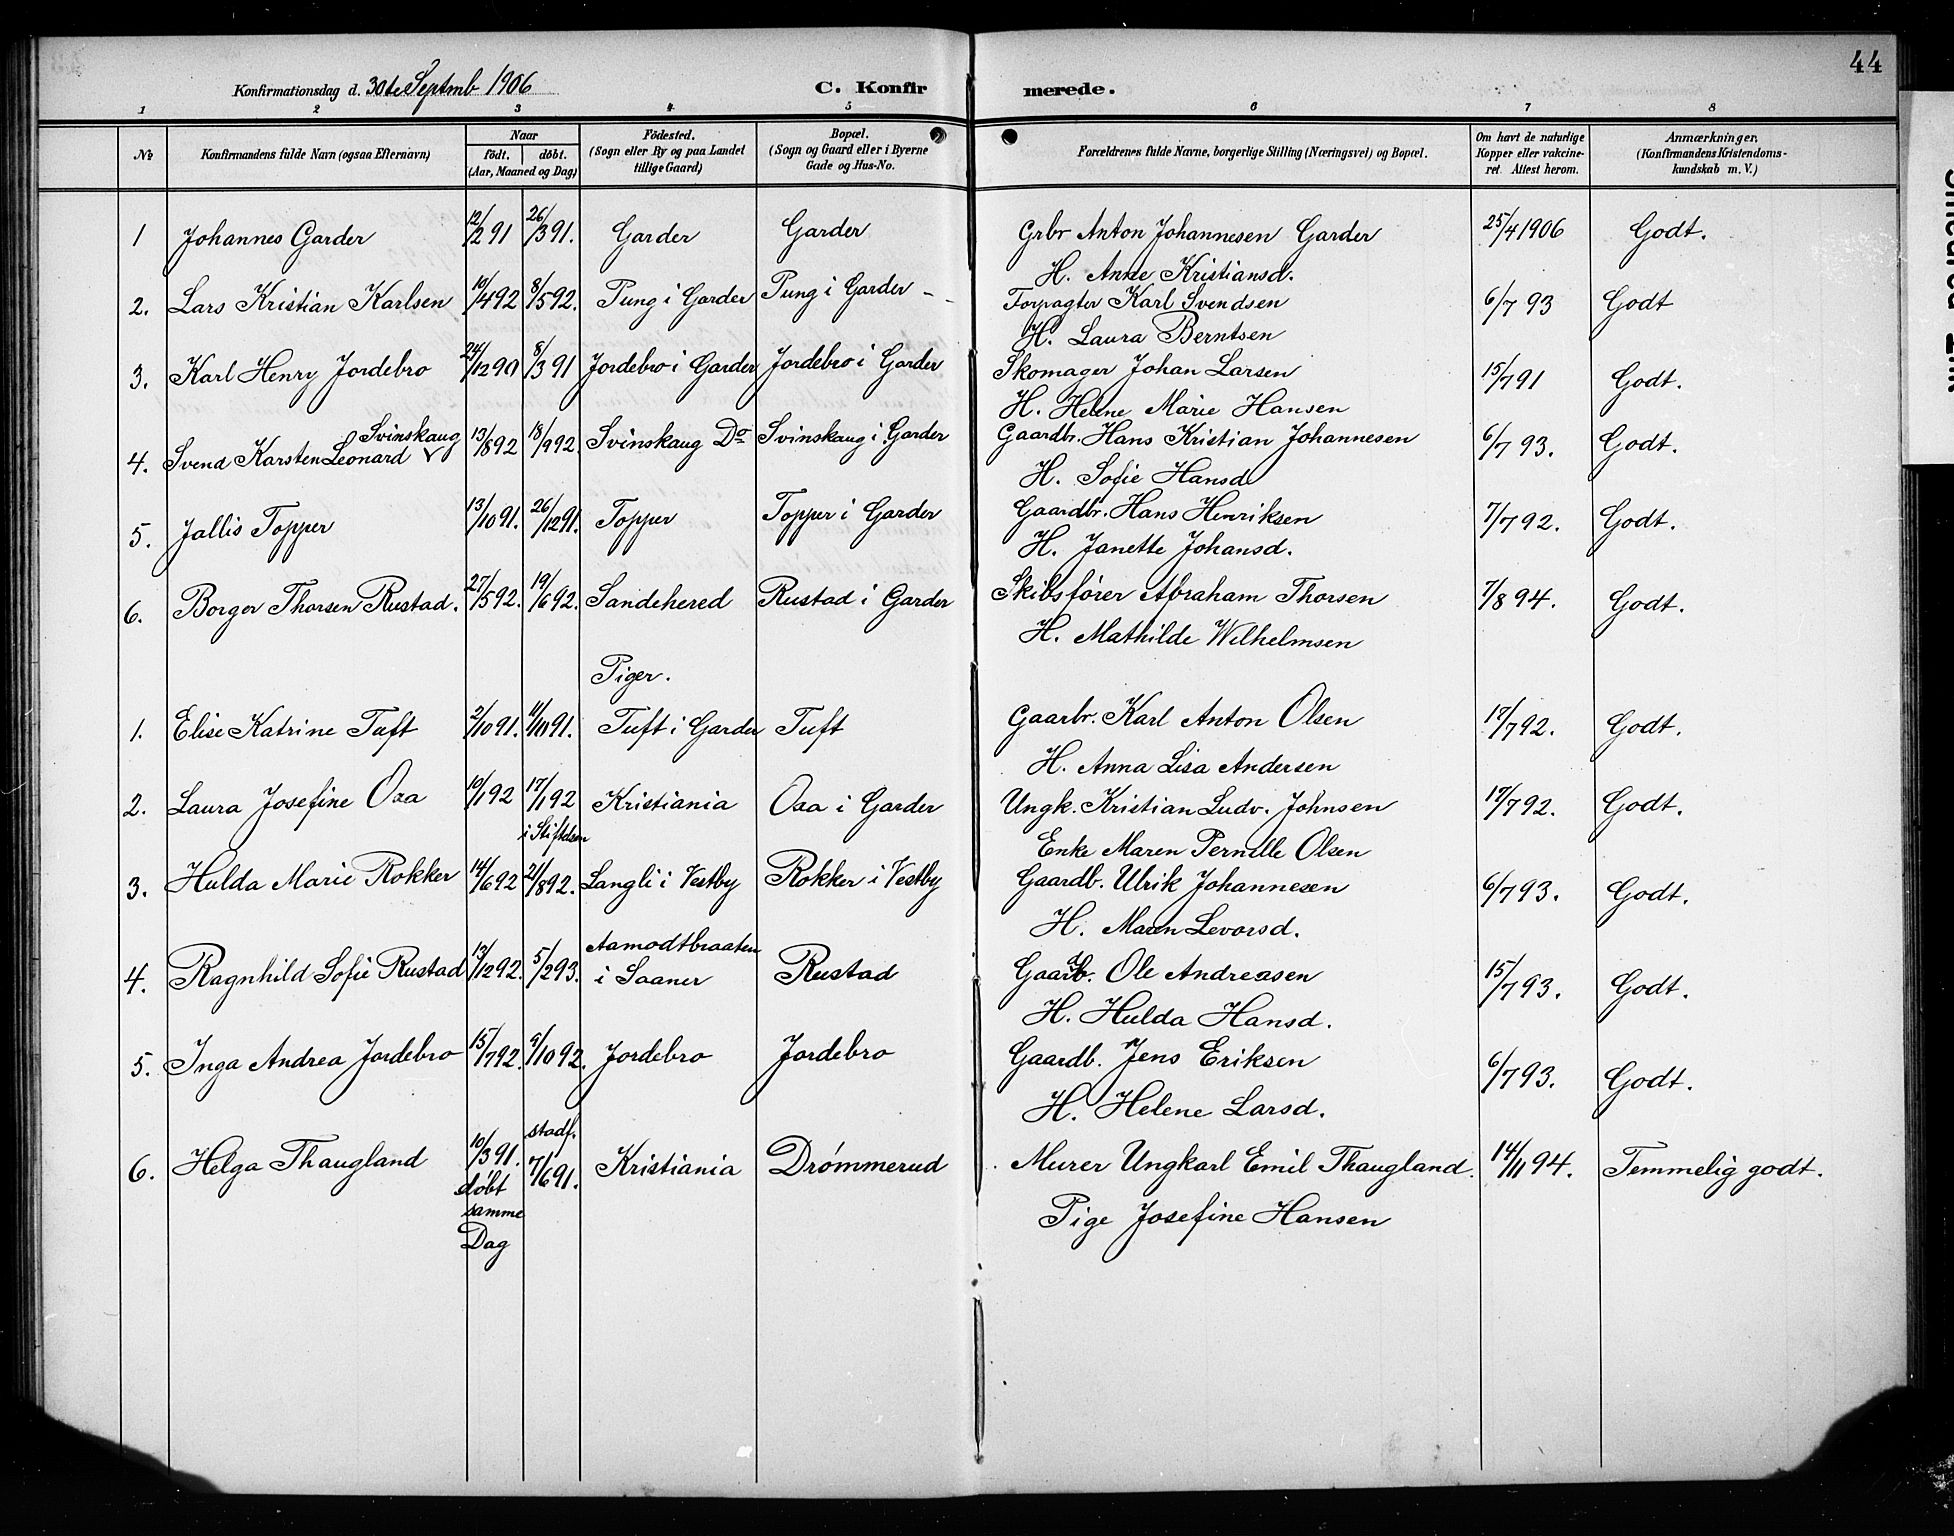 44
Konfirmationsdag d. 30te Septmb 1906 C. Konfirmerede.
1 2 3 4 5 6 7 8
No Konfirmandens fulde Navn (ogsaa Efternavn) Naar født. døbt. (Aar, Maaned og Dag) Fødested. (Sogn eller By og paa Landet tillige Gaard) Bopæl. (Sogn og Gaard eller i Byerne Gade og Hus-No. Forældrenes fulde Navne, borgerlige Stilling (Næringsvei) og Bopæl. Om havt de naturlige Kopper eller vakcineret. Attest herom. Anmærkninger, (Konfirmandens Kristendomskundskab m. V.)
1 Johannes Garder 12/2 91 26/3 91. Garder Garder Grbr Anton Johannesen Garder 25/4 1906 Godt.
H. Anne Kristiansd.
2. Lars Kristian Karlsen 10/4 92 8/5 92. Pung i Garder Pung i Garder Forpagter Karl Svendsen 6/7 93 Godt
H. Laura Berntsen
3. Karl Henry Jordebro 24/12 90 8/3 91 Jordebro i Garder Jordebro i Garder Skomager Johan Larsen 15/7 91 Godt.
H. Helene Marie Hansen
4. Svend Karsten Leonard Svinskaug 13/8 92 18/9 92. Svinskaug Do Svinskaug i Garder Gaardbr. Hans Kristian Johannesen 6/7 93. Godt.
H. Sofie Hansd
5. Jallis Topper 13/10 91. 26/12 91. Topper Topper i Garder Gaardbr. Hans Henriksen 7/7 92. Godt.
H. Janette Johansd.
6. Borger Thorsen Rustad. 27/5 92. 19/6 92. Sandehered Rustad i Garder Skibsfører Abraham Thorsen 7/8 94. Godt.
H. Mathilde Wilhelmsen
Piger.
1. Elise Katrine Tuft 2/10 91. 11/10 91. Tuft i Garder Tuft Gaarbr. Karl Anton Olsen 17/7 92. Godt.
H. Anna Lisa Andersen
2. Laura Josefine Oxa 10/1 92 17/1 92 i Stiftelsen Kristiania Oxa i Garder Ungk. Kristian Ludv. Johnsen 17/7 92. Godt.
Enke Maren Pernille Olsen
3. Hulda Marie Rokker 14/6 92 21/8 92. Langli i Vestby Rokker i Vestby Gaardb. Ulrik Johannesen 6/7 93. Godt.
H. Maren Levorsd.
4. Ragnhild Sofie Rustad 13/12 92. 5/2 93. Aamodtbraaten i Saaner Rustad Gaardb. Ole Andreasen 15/7 93. Godt.
H. Hulda Hansd.
5. Inga Andrea Jordebro 15/7 92. 9/10 92. Jordebro Jordebro Gaardb. Jens Eriksen 6/7 93. Godt.
H. Helene Larsd.
6. Helga Thaugland 10/3 91. døbt samme Dag stadf. 7/6 91. Kristiania Drømmerud Murer Ungkarl Emil Thaugland. 14/11 94. Temmelig godt.
Pige Josefine Hansen